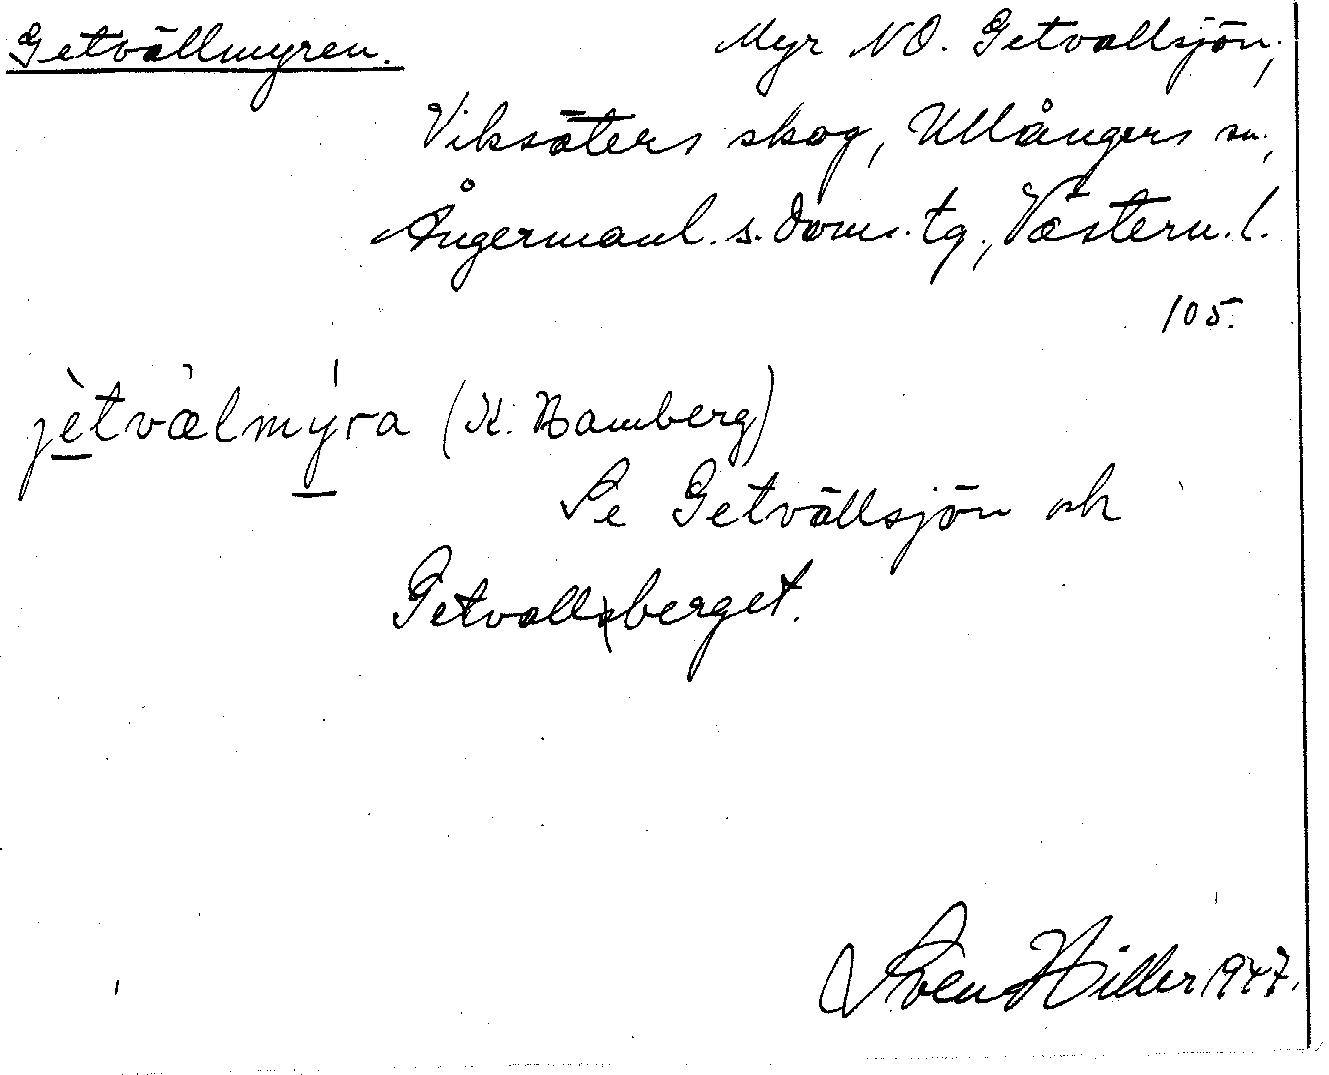 Getvällmyren.
Myr NO. Getvallsjön,
Viksäters skog, Ullångers sn.,
Ångermanl. s. doms. tg., Västern. l.
105.
jètvàlmýra (K. Hamberg)
Se Getvällsjön och
Getvallsberget.
Sven Hiller 1947.